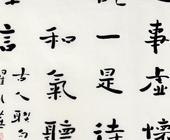 事虚懷
一是待
和氣聽
言
古人聯句